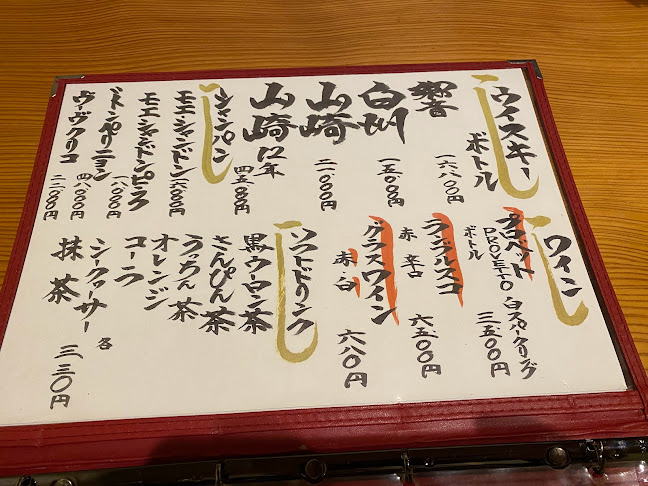 ウイスキー
ボトル
響
一六八〇〇円
白州
一五〇〇〇円
山崎
二一〇〇〇円
山崎12年
四五〇〇〇円
シャンパン
モエ・シャンドン
一六〇〇〇円
モエシャンドンピンク
一八〇〇〇円
ドンペリニヨン
四八〇〇〇円
ヴーヴクリコ
二二〇〇〇円
ワイン
プロベット
PROVETTO 白スパークリング
ボトル
三、五〇〇円
ランブルスコ
赤 辛口
六、五〇〇円
グラスワイン
赤・白
六八〇円
ソフトドリンク
黒ウーロン茶
さんぴん茶
うっちん茶
オレンジ
コーラ
シークヮーサー
各
抹茶
三、三〇円